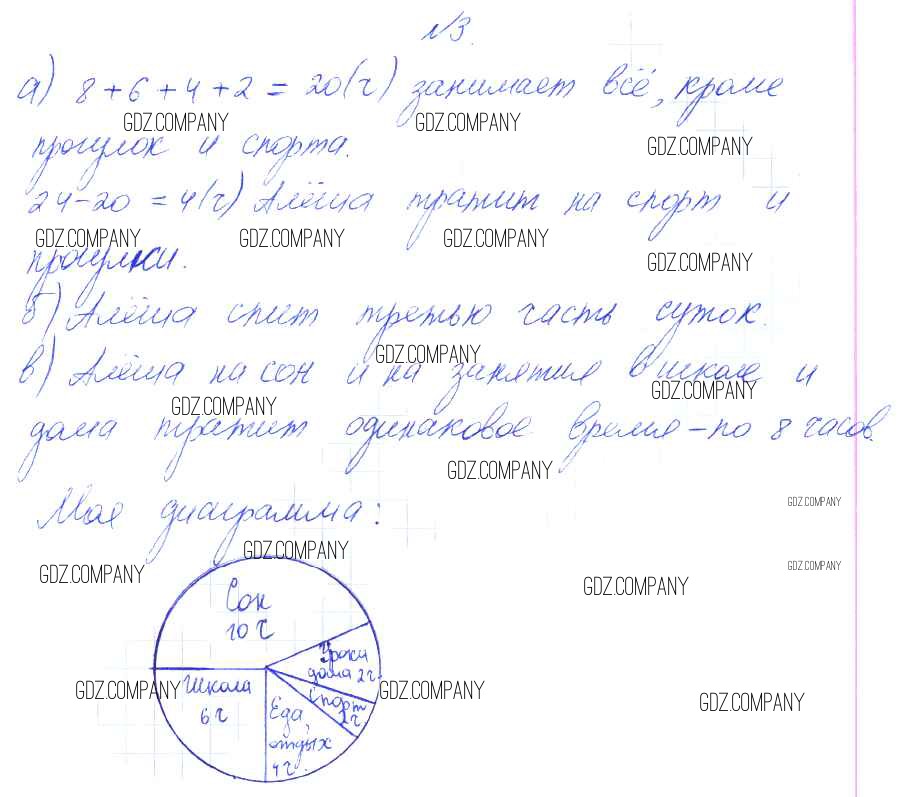 №3.
а) 8+6+4+2 = 20(ч) занимает всё, кроме
GDZ.COMPANY GDZ.COMPANY
прогулок и спорта. GDZ.COMPANY
24-20 = 4(ч) Алёша тратит на спорт и
GDZ.COMPANY GDZ.COMPANY GDZ.COMPANY
прогулки. GDZ.COMPANY
б) Алёша спит третью часть суток.
GDZ.COMPANY
в) Алёша на сон и на занятия в школе и
GDZ.COMPANY GDZ.COMPANY
дома тратит одинаковое время – по 8 часов.
GDZ.COMPANY
Моя диаграмма: GDZ.COMPANY
GDZ.COMPANY
GDZ.COMPANY GDZ.COMPANY GDZ.COMPANY
Сон
10 ч
Уроки
дома 2ч.
Школа
6 ч
GDZ.COMPANY GDZ.COMPANY GDZ.COMPANY
Спорт
Еда,
отдых
4 ч.